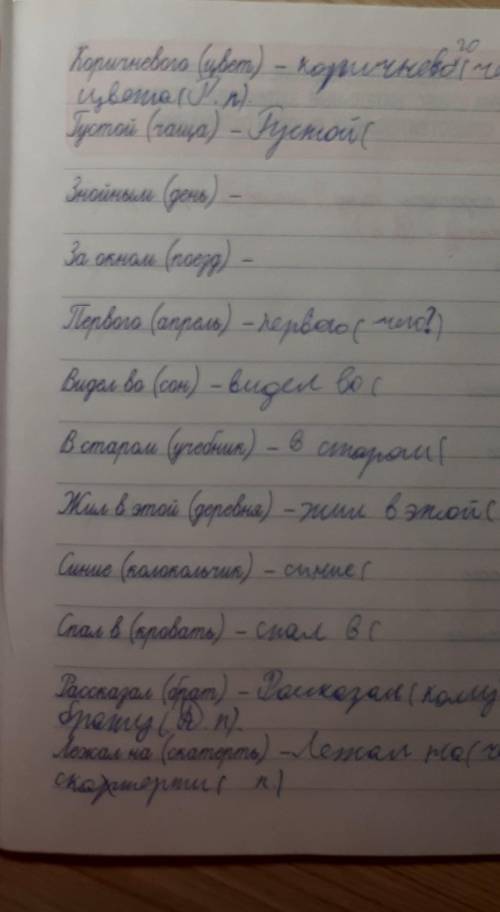 го
Коричневого (цвет) - коричнево( че
цвета (Р. п)
Густой (чаща) - Густой (
Знойным (день) -
За окном (поезд) -
Первого (апрель) - первого ( чего?)
Видел во (сон) - видел во (
В старом (учебник) - в старом (
Жил в этой (деревня) - жил в этой (
Синие (колокольчик) - синие (
Спал в (кровать) - спал в (
Рассказал (брат) - Расказал ( кому
брату ( Д. п).
Лежал на (скатерть) - Лежал на ( ч
скатерти ( п)